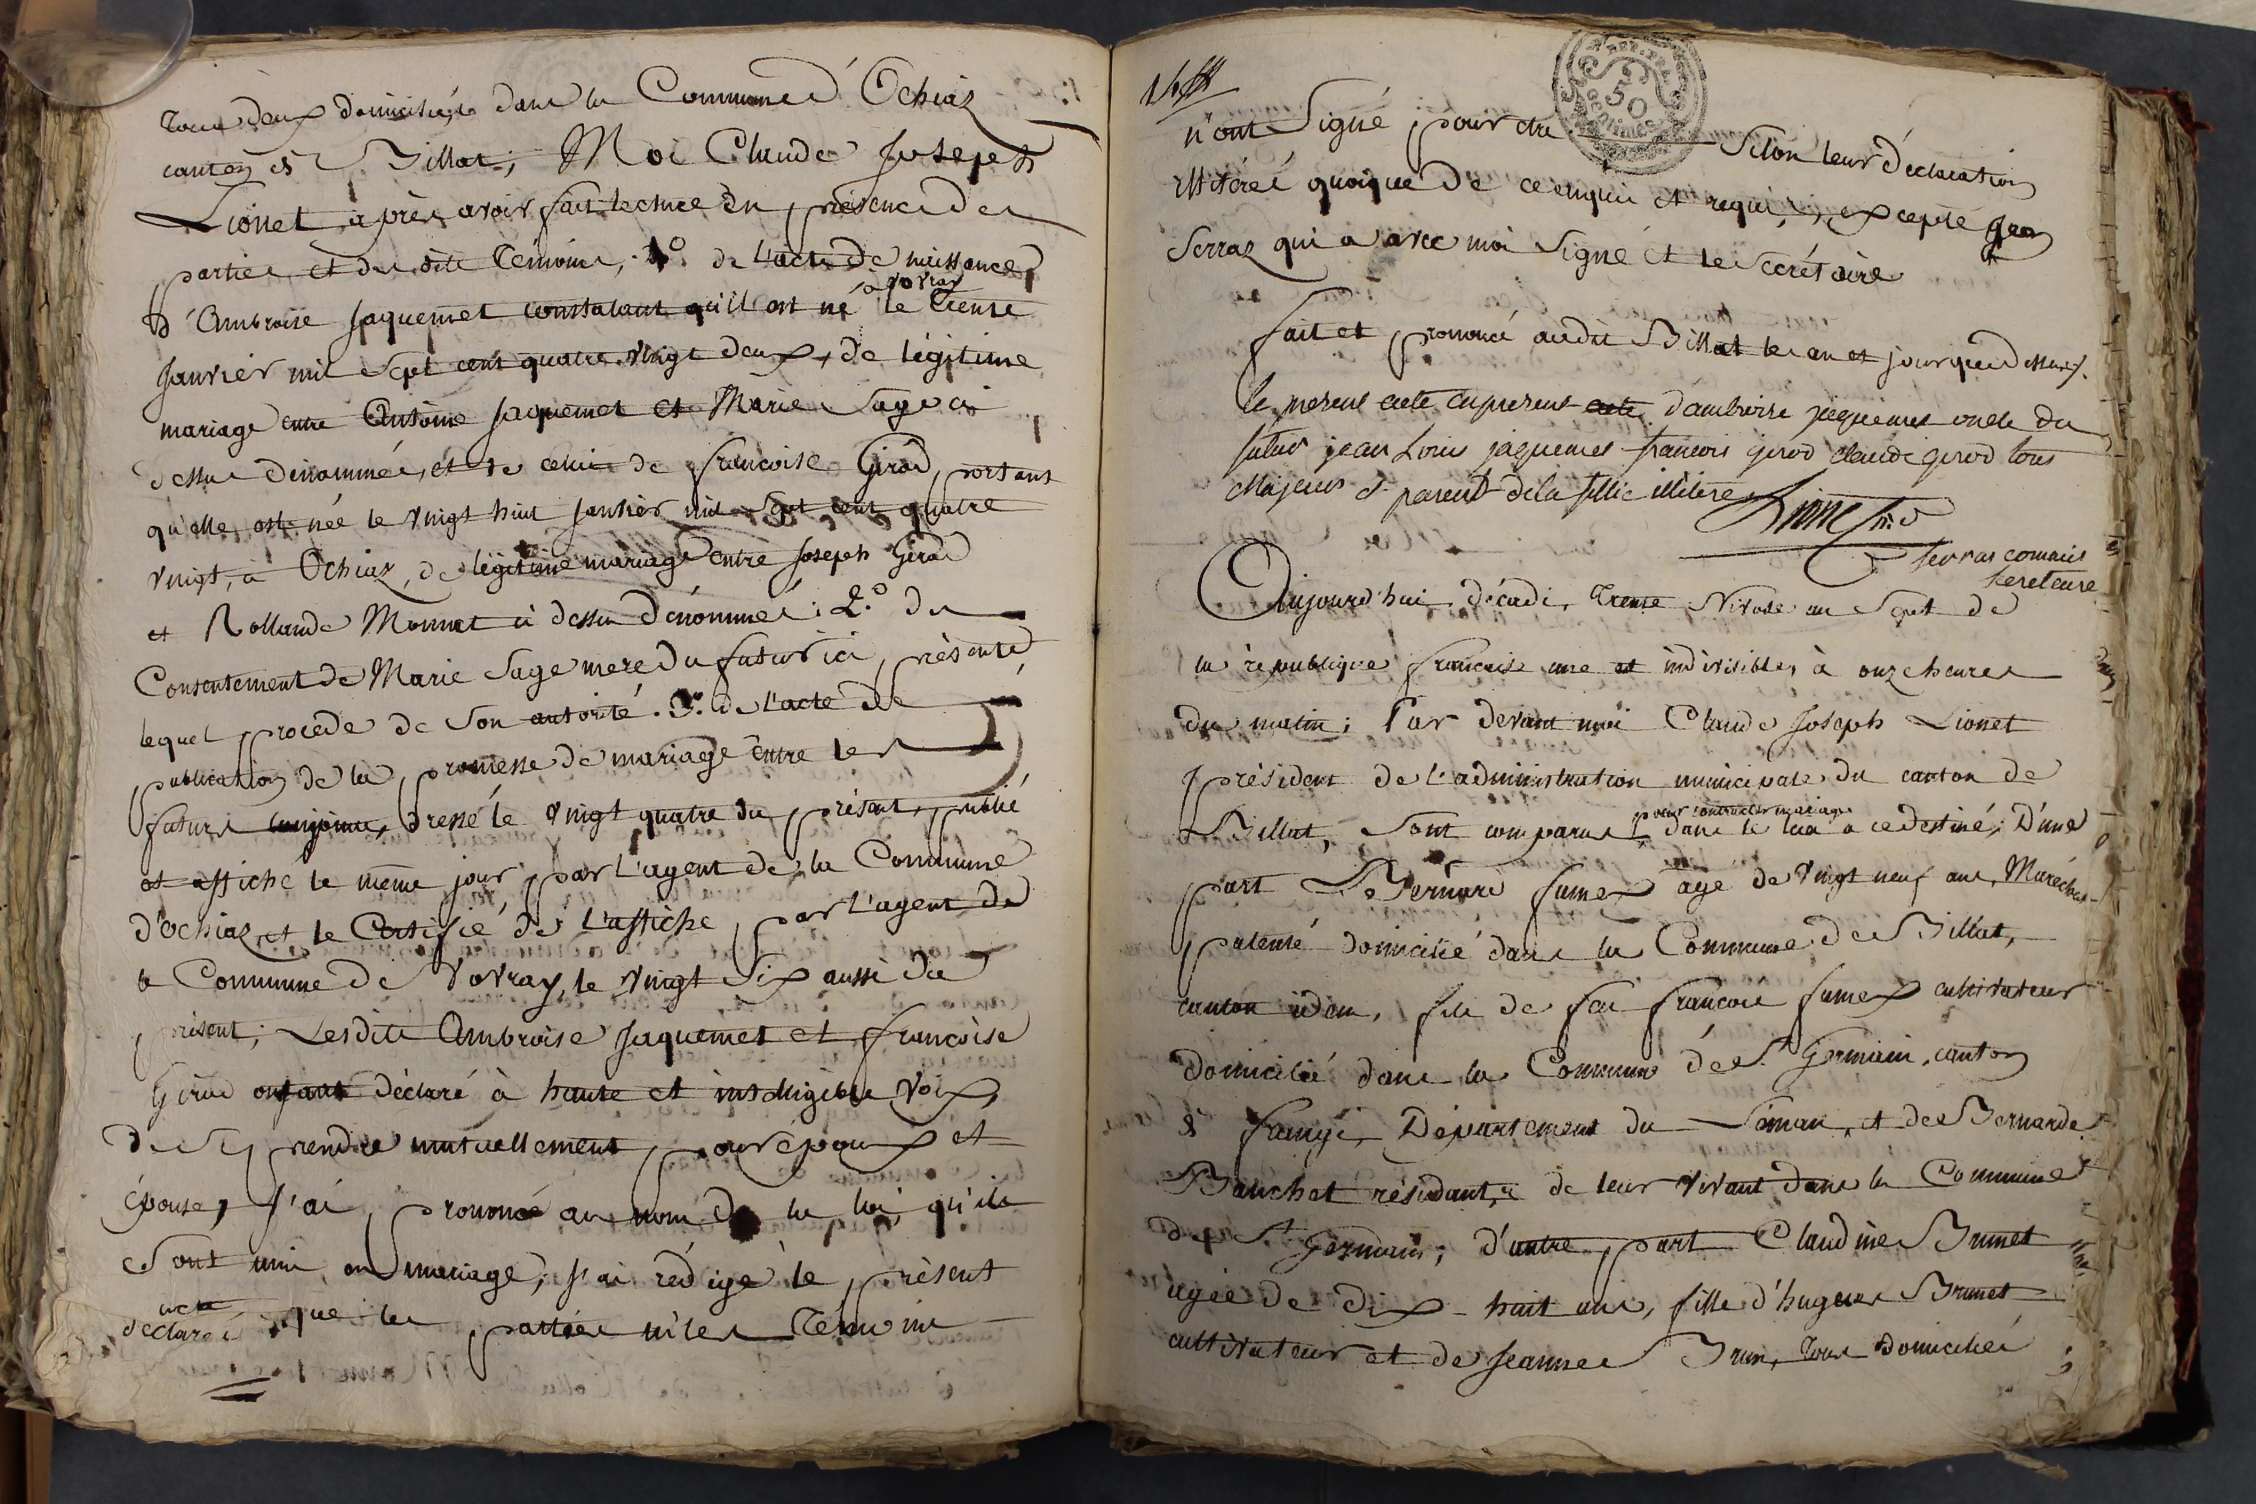 tous deux domiciliés dans la Commune d'Ochiaz
canton de Billat; Moi Claude Joseph
Lionet après avoir fait lecture en présence des
parties et des dits Témoins, 1.° de l'acte de naissance
d'Ambroise Jaquemet constatant qu'il est né à vovray le trente
Janvier mil sept cent quatre vingt deux, de légitime
mariage entre Antoine Jaquemet et Marie Sage ci
dessus dénommés, et de celui de françoise Girod, portant
qu'elle est née le vingt huit Janvier mil sept cent quatre
vingt, à Ochiaz, de légitime mariage entre Joseph Girod
et Rollande Monnet ci dessus dénommés; 2.° du
Consentement de Marie Sage mere du futur ici présente
lequel procède de son autorité. 3.° de l'acte de
publication de la promesse de mariage entre les
futurs conjoints, dressé le vingt quatre du présent, publié
et affiché le même jour, par l'agent de la Commune
d'Ochiaz, et le Certifié de l'affiche, par l'agent de
la Commune de Vovray, le vingt Six aussi du
présent; Lesdits Ambroise Jaquemet et françoise
Girod ont déclaré à haute et intelligible voix,
de Se prendre mutuellement pour époux et
épouse, J'ai prononcé au nom de la loi, qu'ils
Sont unis en mariage, J'ai rédigé le présent
acte
déclaré que les parties ni les Témoins
n'ont Signé pour être Selon leur déclaration
illitérés quoique de ce enquis et requis, excepté Jean
Serraz qui a avec moi Signé et le Secrétaire
fait et prononcé audit Billat les an et jour que dessus.
le present acte en present d'ambroise jaquemet oncle du
futur jean Louis jaquemet francois girod claude girod tous
Majeurs et parent de la fille illiteré
Lionet
Serras commis
Secretaire
Aujourd'hui décadi, trente Nivose an Sept de
la république française une et indivisible, à onze heures
du matin; Par devant moi Claude Joseph Lionet
président de l'administration municipale du canton de
Billat, sont comparus pour contracter mariage dans le lieu a ce destiné; D'une
part Bernard fumex âgé de vingt neuf ans, Maréchal
patenté domicilié dans la Commune de Billat,
canton idem, fils de feu françois fumex cultivateur
domicilié dans la Commune de St. Germain, canton
de frangi, Département du Léman, et de Bernarde
Banchet résidants de leur vivant dans la Commune
de St. Germain; d'autre part Claudine Brunet
agée de dix-huit ans, fille d'hugues Brunet
cultivateur et de Jeanne Brun, tous domiciliés